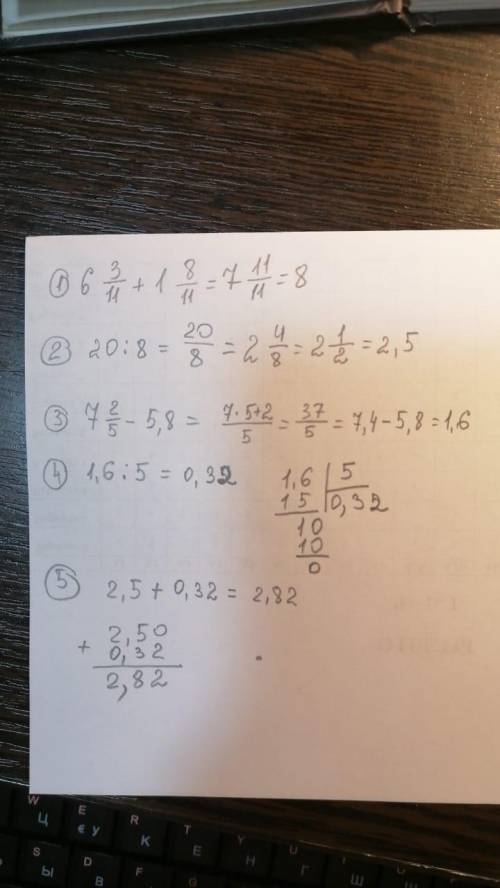 ① 6 3/11 + 1 8/11 = 7 11/11 = 8
② 20 : 8 = 20/8 = 2 4/8 = 2 1/2 = 2,5
③ 7 2/5 - 5,8 = 7·5+2/5 = 37/5 = 7,4 - 5,8 = 1,6
④ 1,6 : 5 = 0,32
1,6 | 5
15 | 0,32
10
10
0
⑤ 2,5 + 0,32 = 2,82
+ 2,50
0,32
2,82
W E R T Y U
Ц € У К Е Н Г
S D F
Ы В А